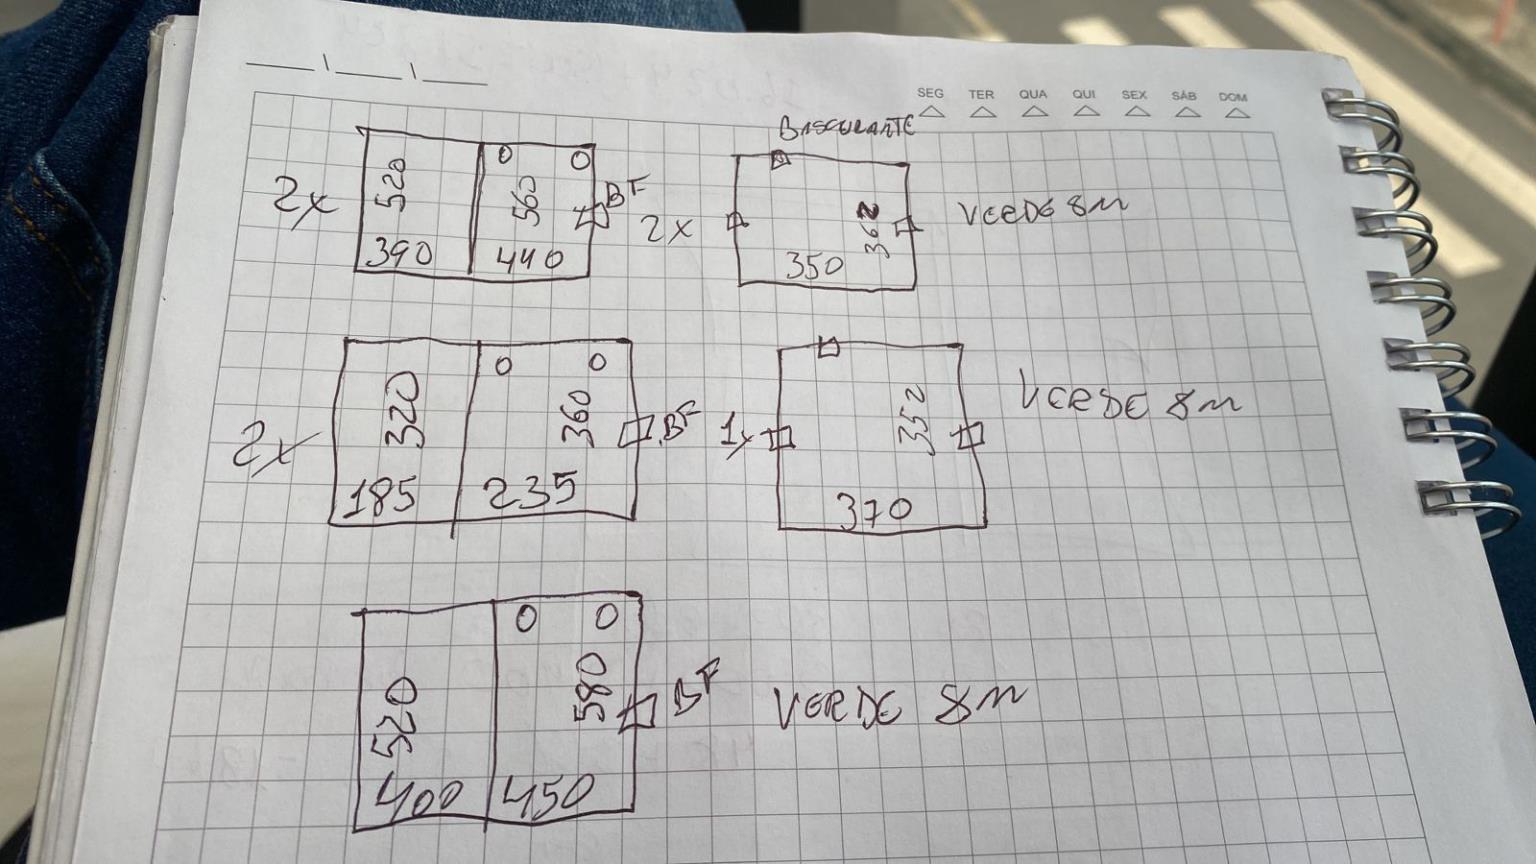 SEG TER QUA QUI SEX SÁB DOM
BASCULANTE
2x 520 560 BF 2x 362 VERDE 8m
390 440 350
2x 320 360 BF 1x 352 VERDE 8m
185 235 370
520 580 BF VERDE 8m
400 450